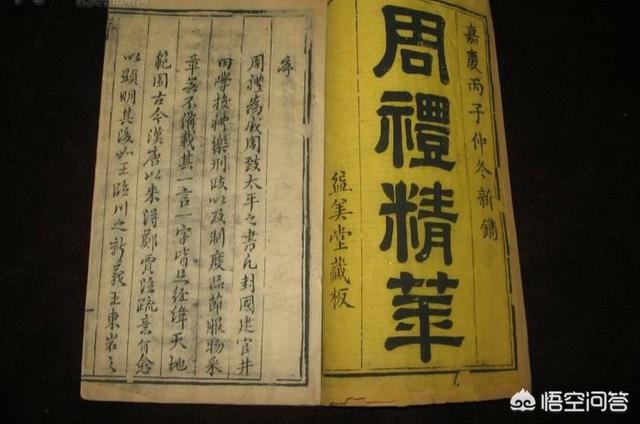 嘉慶丙子仲冬新鐫
周禮精華
益美堂藏板
序
周禮為成周致太平之書凡封國建官井
田學校禮樂刑政以及制度品節服物采
章無不備載其一言一字皆足經緯天地
範圍古今漢唐以來得鄭賈注疏愈
以顯明其後如王臨川之新義王東岩之
悟空问答